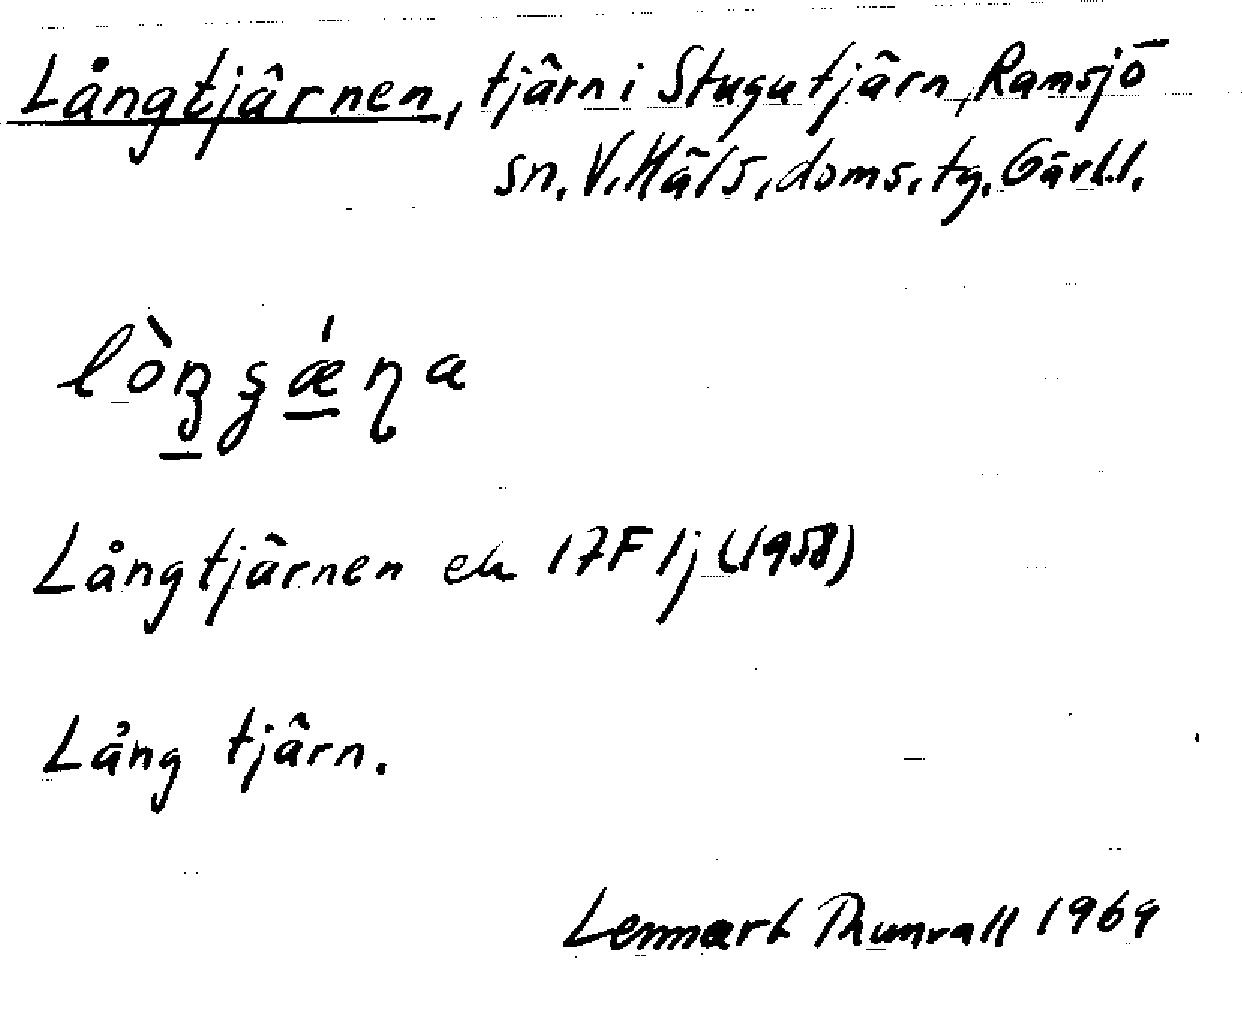 Långtjärnen, tjärn i Stugutjärn, Ramsjö
sn. V. Häls. doms. tg. Gävl.l.
Långtjärnen ek 17F 1j (1958)
Lång tjärn.
Lennart Thunvall 1969